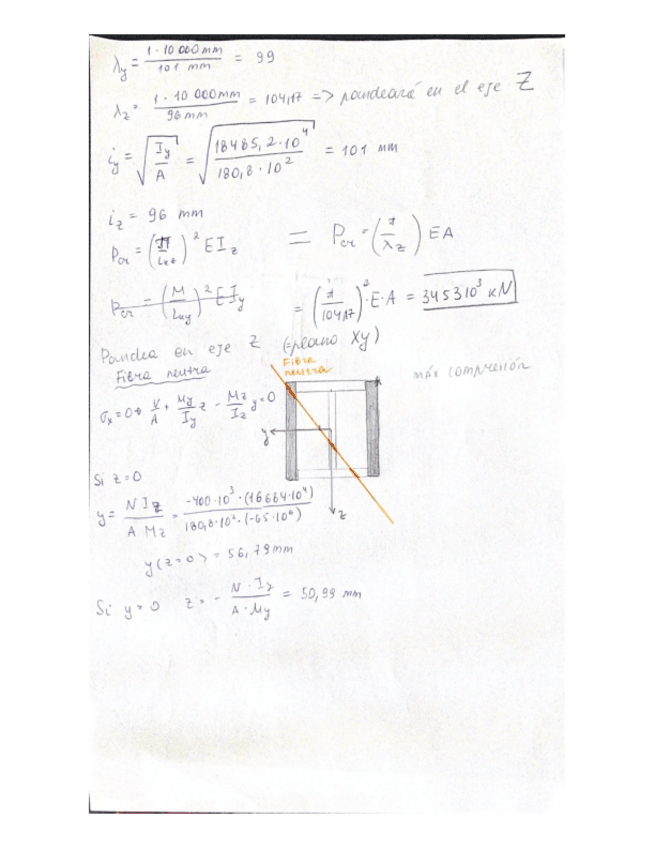 λy = 1·10 000 mm / 101 mm = 99
λz = 1·10 000 mm / 96 mm = 104,17 => pandeará en el eje Z
iy = √(Iy / A) = √(18485,2·10^4 / 180,8·10^2) = 101 mm
iz = 96 mm
Pcr = (π / Lkz)^2 EIz = Pcr = (π / λz) EA
Pcr = (π / Lky)^2 EIy = (π / 104,17)^2 · E · A = 3453 10^3 kN
Pandea en eje z (=plano xy)
Fibra neutra
Fibra neutra
máx compresión
σx = 0 → N/A + My/Iy z - Mz/Iz y = 0
y
z
Si z=0
y = N Iz / A Mz = -400·10^3 · (16664·10^4) / 180,8·10^2 · (-65·10^6)
y(z=0) = 56,79 mm
Si y=0 z = - N·Iy / A·My = 50,99 mm